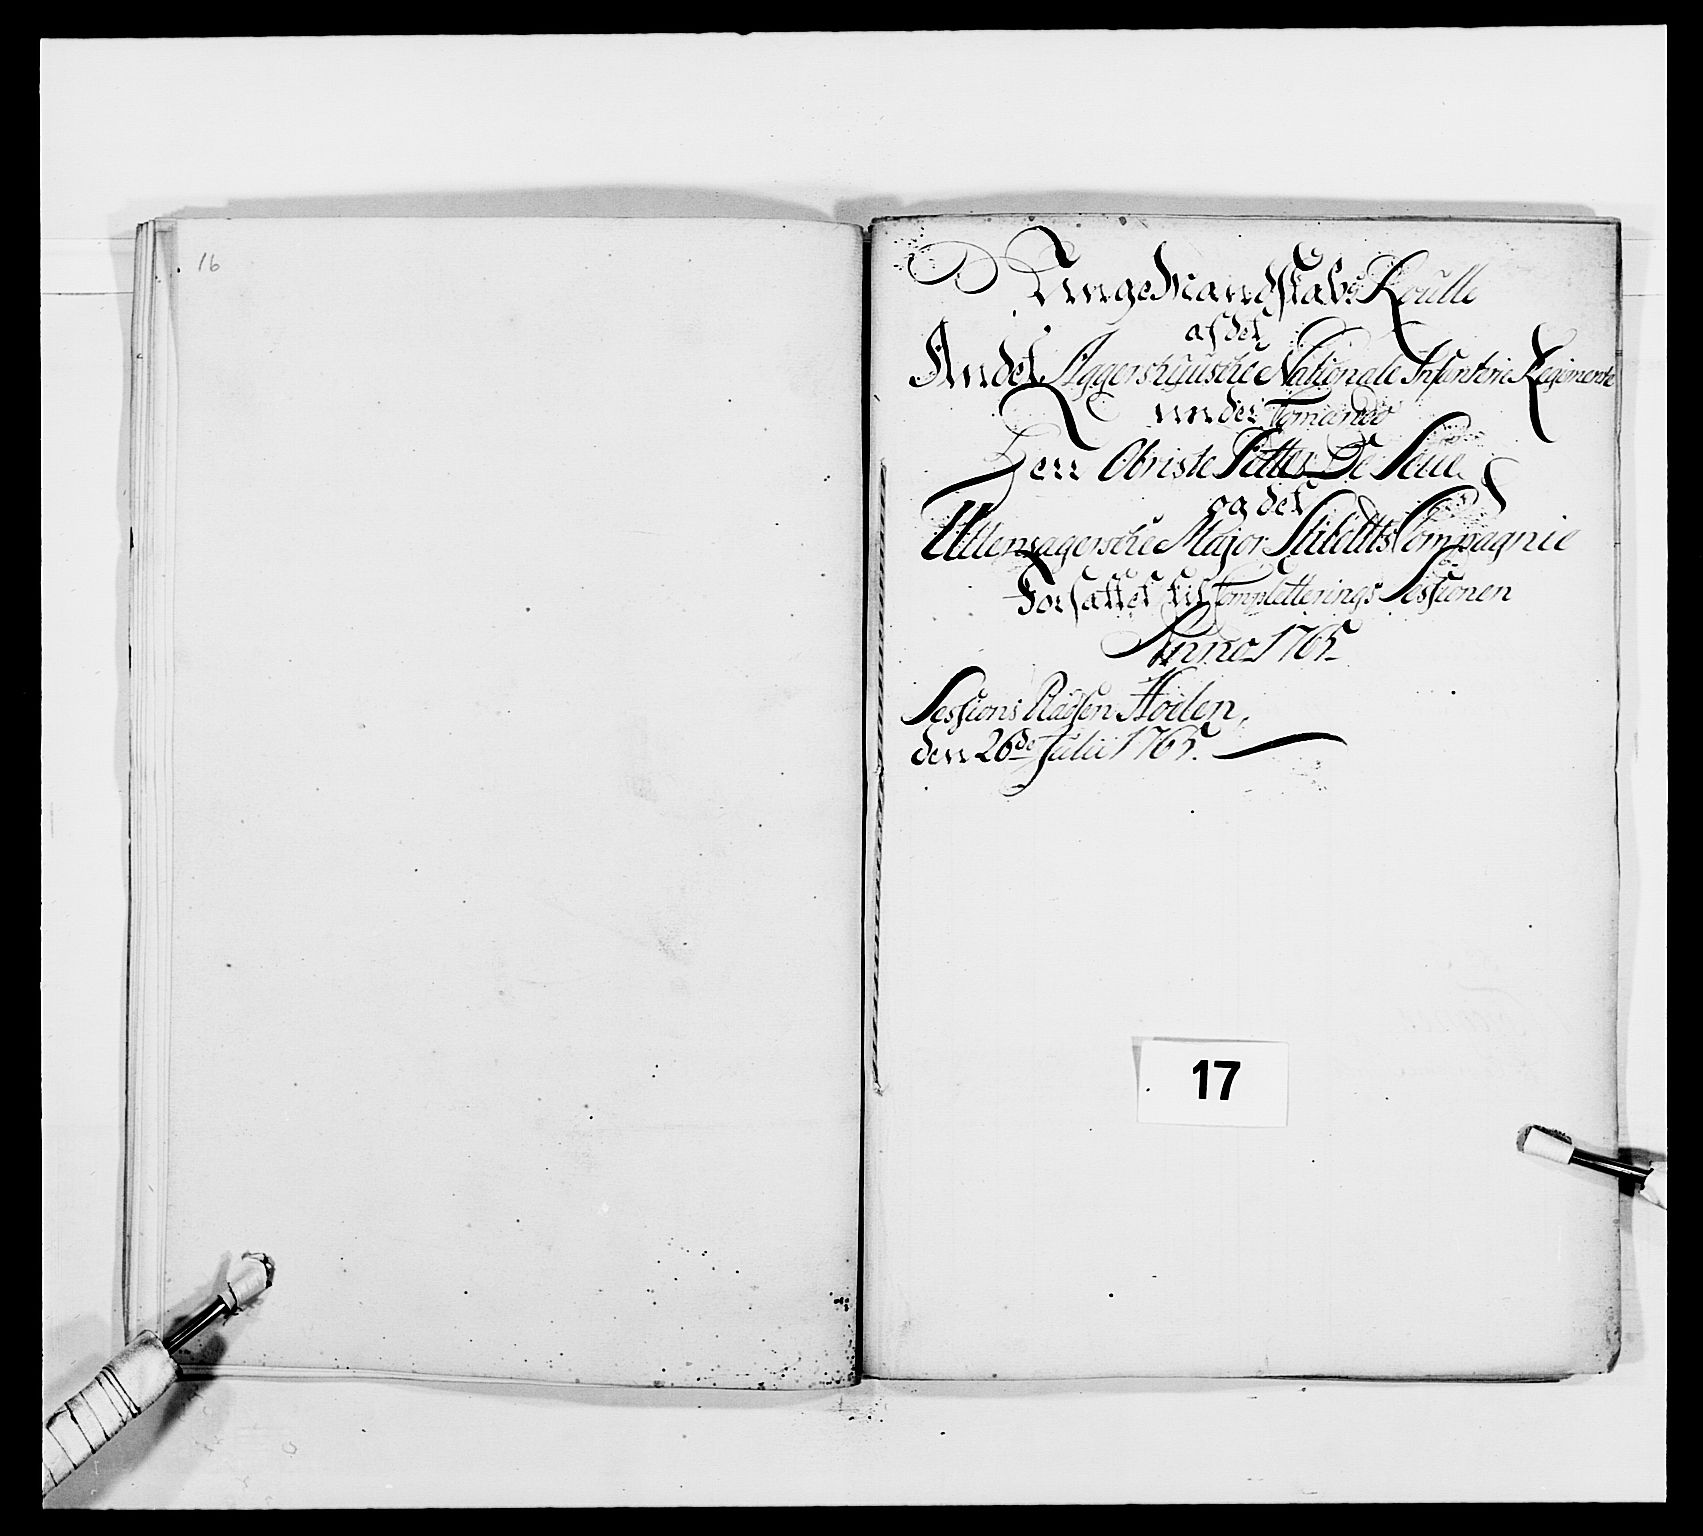 16
UngeMandskabs Roulle
af det
Andet Aggershuusche Nationale Infanterie Regimente
under Comando
Herr Obriste Petter De Seue
og det
Ullensagersche Major Stiboldts Compagnie
Forfattet til Completterings Sessionen
Anno 1765
Sessions Pladsen Hoilen,
den 26de Julii 1765.
17